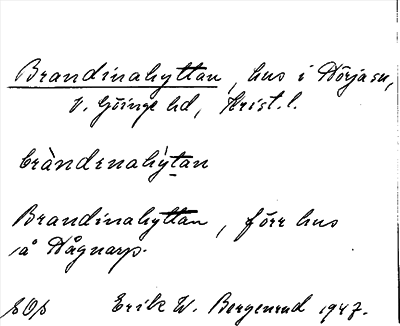 Brandinahyttan, hus i Nörja sn,
V. Göinge hd, Krist. l.
bràndinahýtan
Brandinahyttan, förr hus
på Hågnarp.
SOS Erik W. Borgenrud 1947.